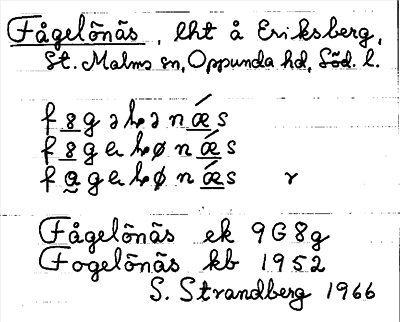 Fågelõnäs, lht å Eriksberg,
St. Malms sn, Oppunda hd, Söd. l.
f 8 g ə l ə n ǽ s
f 8 g e l ø n ǽ s
f a g e l ø n ǽ s r
Fågelõnäs ek 9G8g
Fogelönäs kb 1952
S. Strandberg 1966